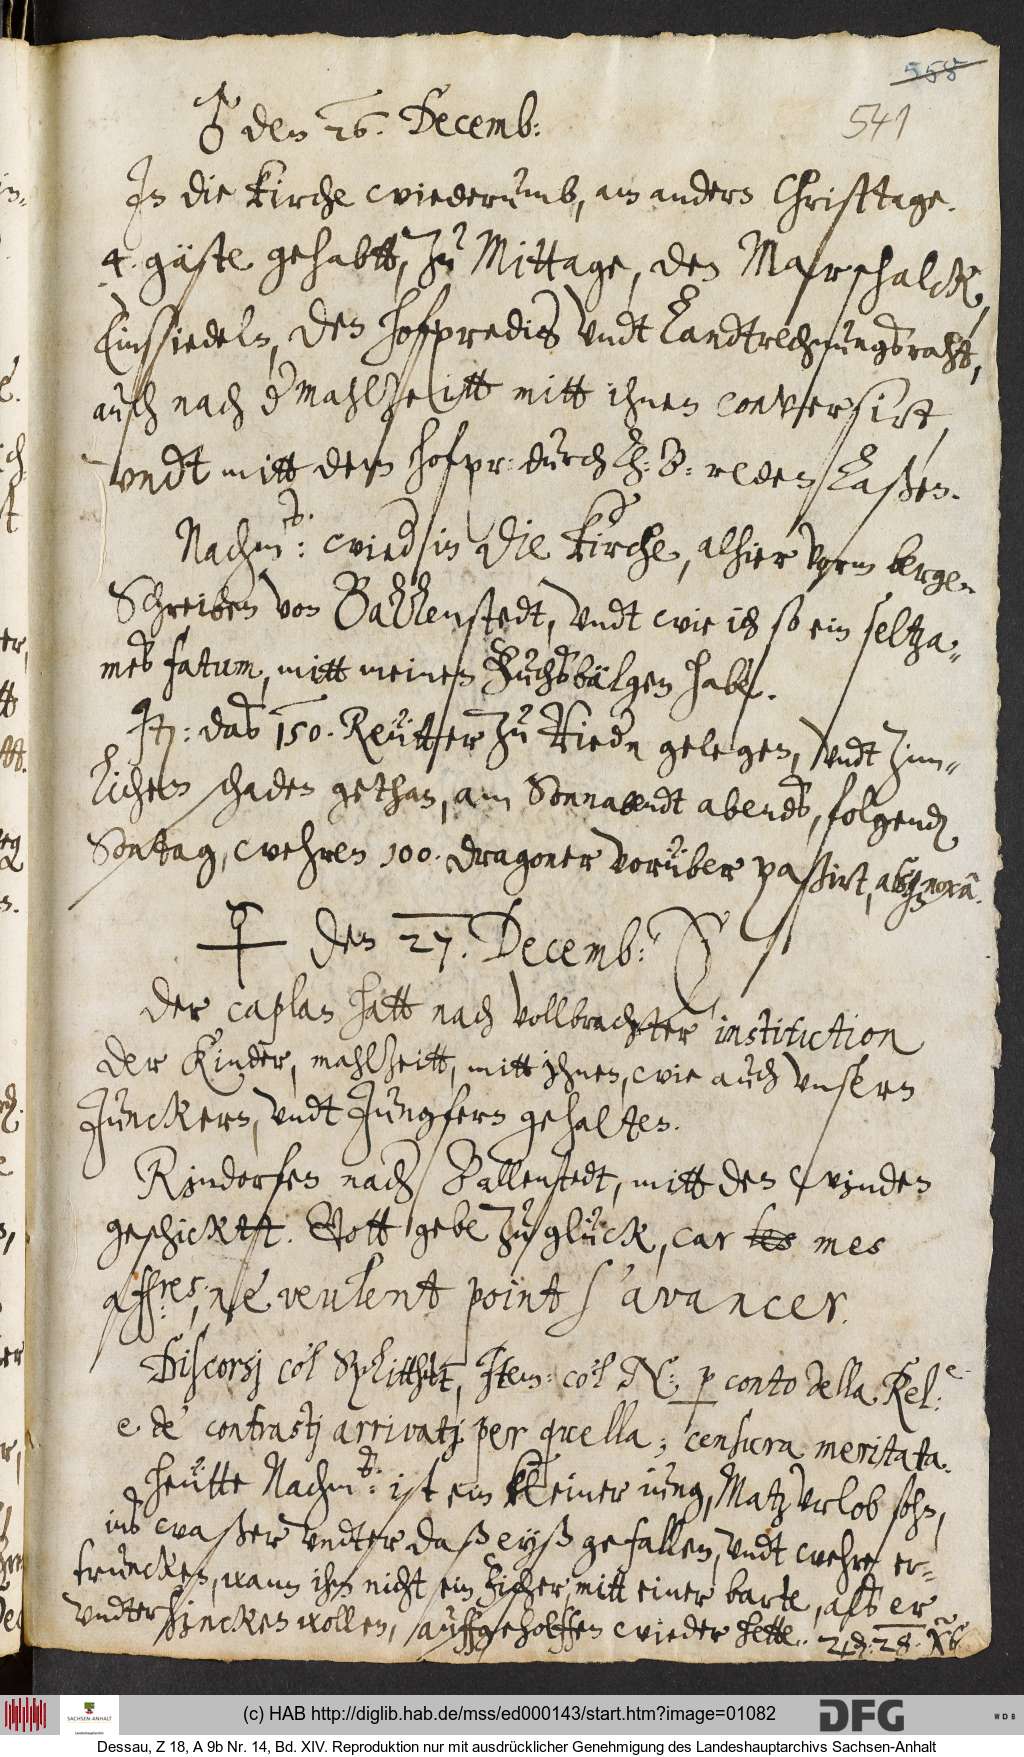 558
541
♂ den 26. Decemb:
In die kirche wiederumb, am andern Christtage.
4. gäste gehabtt, zu Mittage, den Marschalck,
Einsiedeln, den hofpredig: undt Landtrechnungsraht,
auch nach der mahlzeitt mitt ihnen conversirt,
undt mitt dem hofpr: durch reden laßen.
Nachm: wied in die kirche, alhier vorm berge.
Schreiben von Ballenstedt, undt wie ich so ein seltza-
mes fatum, mitt meinen fuchsbälgen habe.
It: das 150. Reütter zu Riedn gelegen, undt zim-
lichen schaden gethan, am Sonnabendt abends, folgends
Sontag, wehren 100. dragoner vorüber paßirt, absq noxâ.
☿ den 27. Decemb:
Der caplan hatt nach vollbrachter institution
der Kinder, mahlzeitt, mitt ihnen, wie auch unsern
Junckern, undt Jungfern gehalten.
Rindorfen nach Ballenstedt, mitt den winden
geschicktt. Gott gebe zu glück, car les mes
aff:res, ne veulent point s'avancer.
Discorsj co'l Item: co'l N: p conto della Rel:e
e de' contrastj arrivatj per quella; censura meritata.
Heütte Nachm: ist ein kleiner iung, Matz Urlob sohn,
ins waßer undter daß eyß gefallen, undt wehre er-
truncken, wann ihm nicht ein fischer mitt einer barte, alß er
undtersincken wollen, auffgeholffen wieder hette. 4: 28. Xb
(c) HAB http://diglib.hab.de/mss/ed000143/start.htm?image=01082
SACHSEN-ANHALT
DFG
WDB
Dessau, Z 18, A 9b Nr. 14, Bd. XIV. Reproduktion nur mit ausdrücklicher Genehmigung des Landeshauptarchivs Sachsen-Anhalt